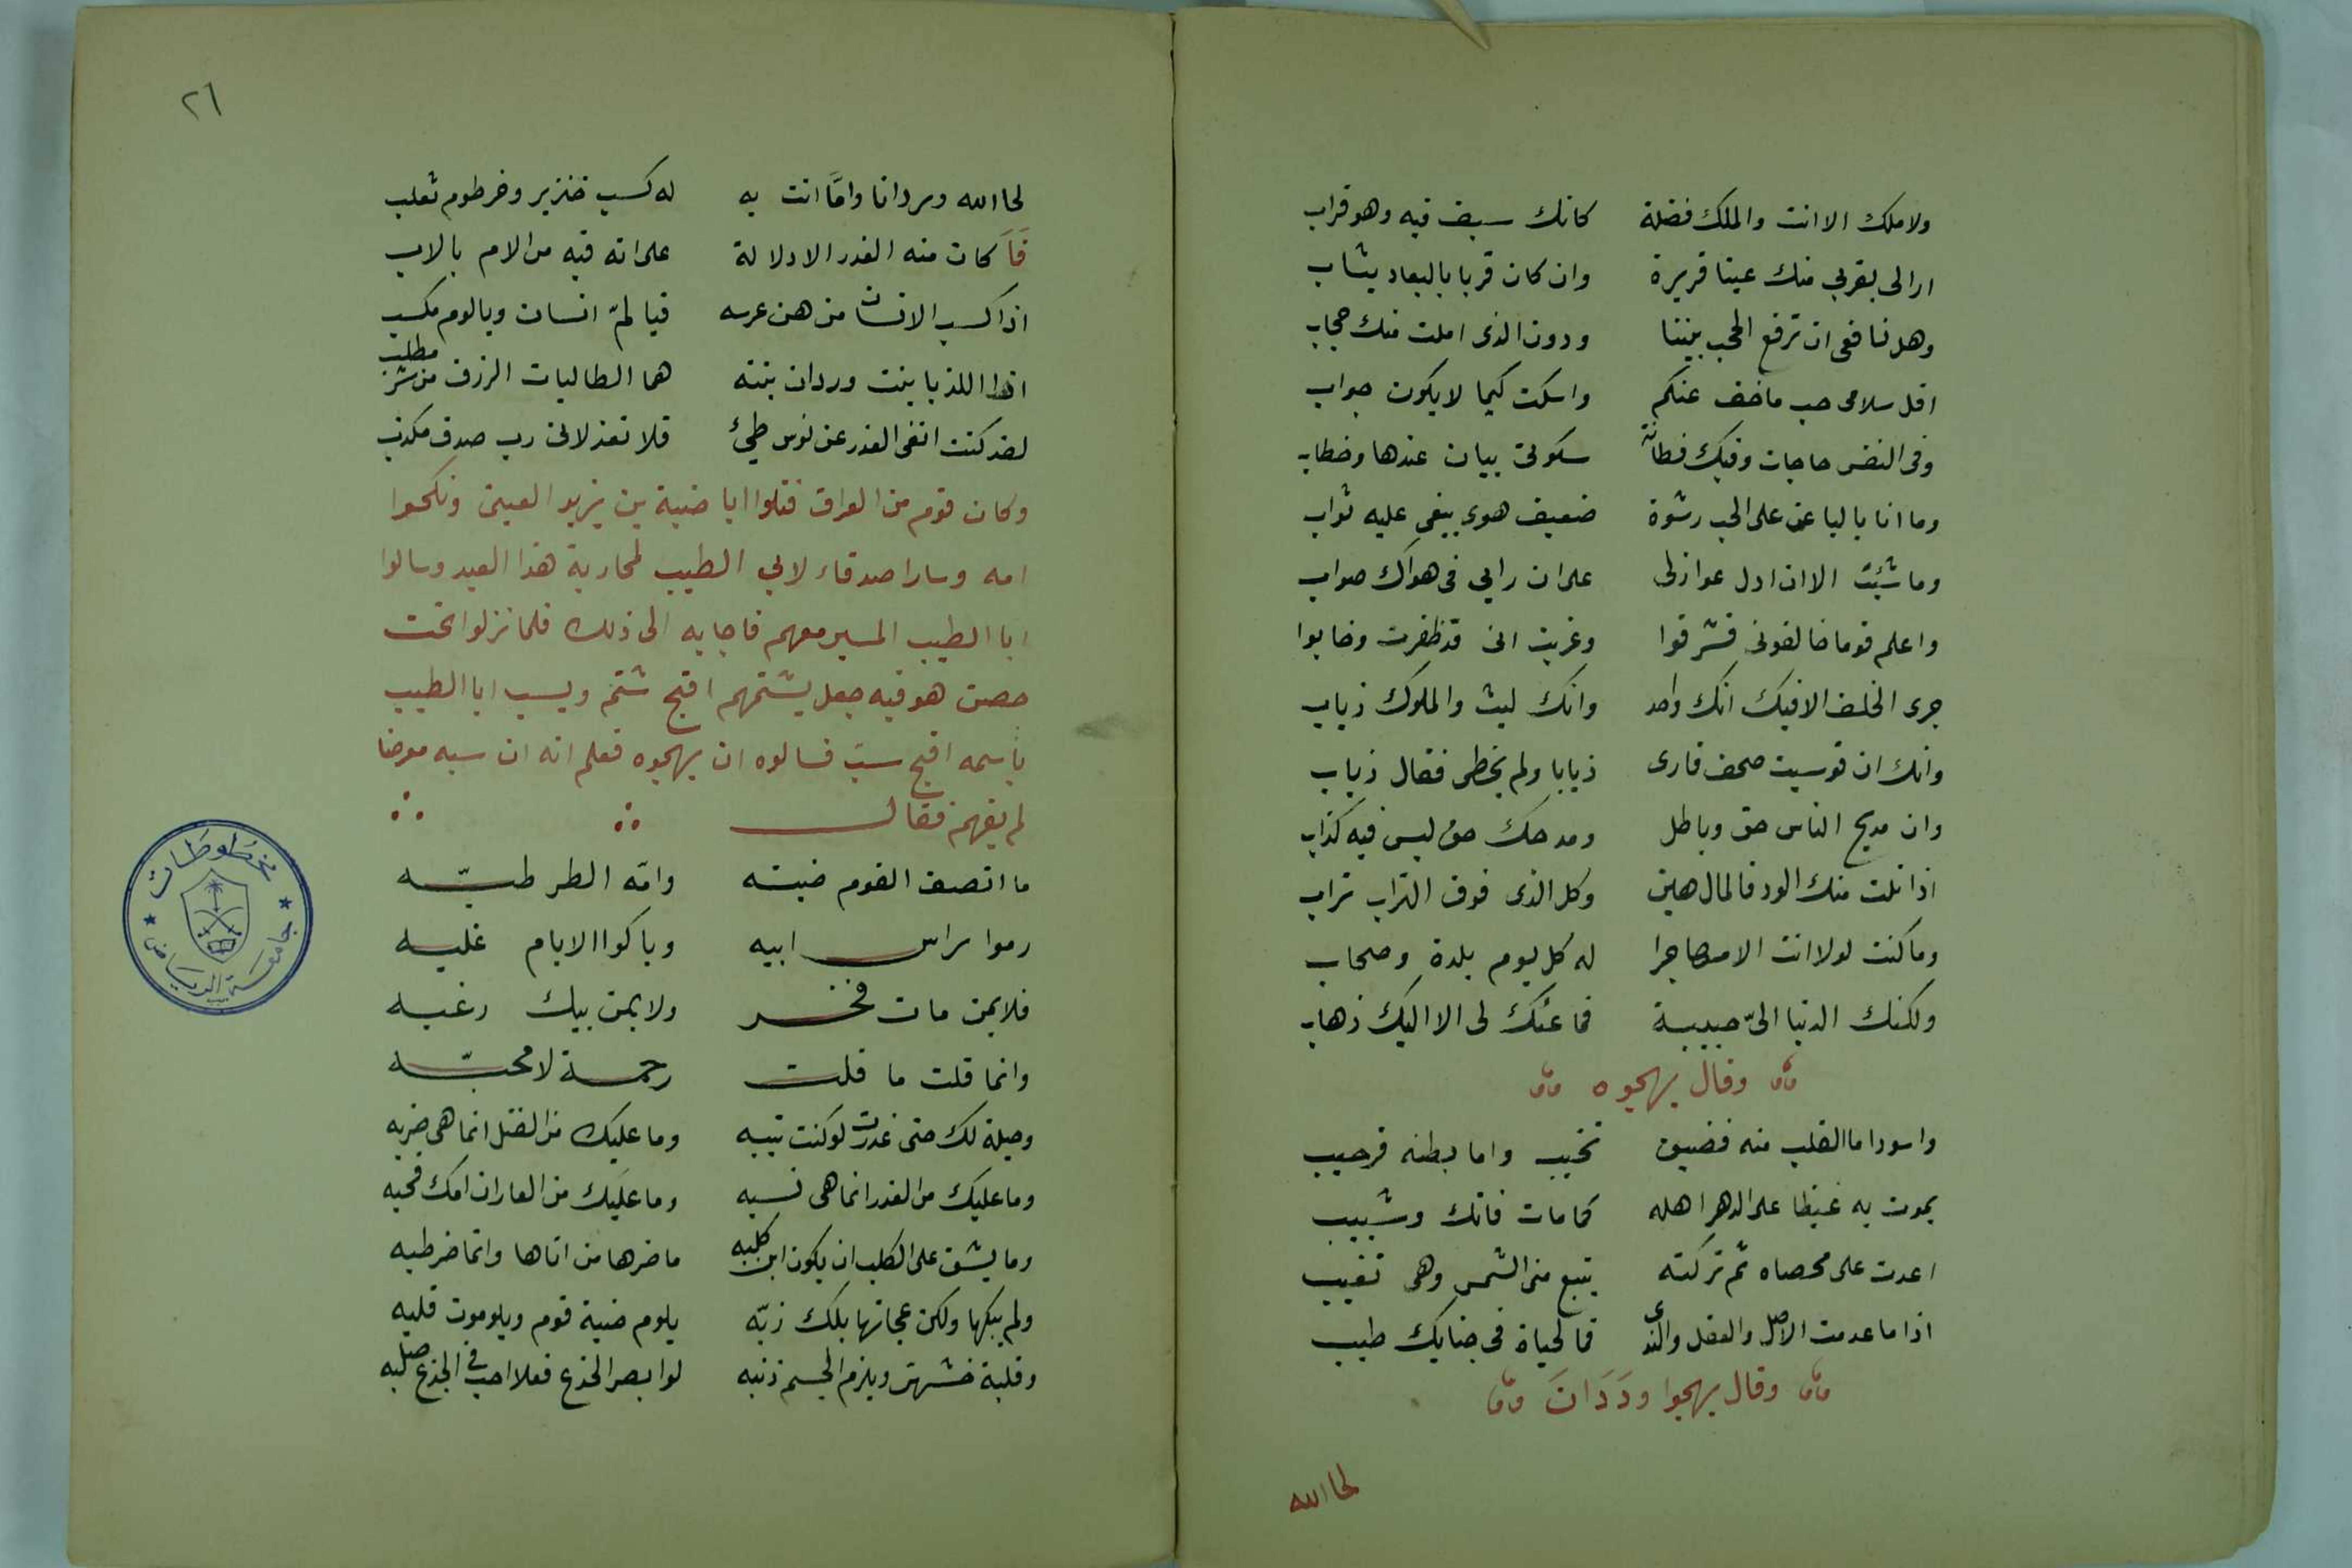 ولا ملك الا انت والملك فضلة كانك سيف فيه وهو قراب
ارالى بقربي منك عينا قريرة وان كان قربا بالبعاد يشاب
وهل نافعى ان ترفع الحجب بيننا ودون الذى املت منك حجاب
اقل سلامى حب ما خف عنكم واسكت كيما لا يكون جواب
وفى النفس حاجات وفيك فطانة سكوتى بيان عندها وخطاب
وما انا بالباعى على الحب رشوة ضعيف هوى يبغى عليه ثواب
وما شئت الا ان ادل عواذلى على ان رايى فى هواك صواب
واعلم قوما خالفونى فشرقوا وغربت انى قد ظفرت وخابوا
جرى الخلف الا فيك انك واحد وانك ليث والملوك ذياب
وانك ان قوسيت صحف قارى ذيابا ولم يخطى فقال ذياب
وان مديح الناس حق وباطل ومدحك حق ليس فيه كذاب
اذا نلت منك الود فالمال هين وكل الذى فوق التراب تراب
وما كنت لولا انت الا مهاجرا له كل يوم بلدة وصحاب
ولكنك الدنيا الىّ حبيبة فما عنك لى الا اليك ذهاب
وقال يهجوه
واسود اما القلب منه فضيق نخيب واما بطنه فرحيب
يموت به غيظا على الدهر اهله كما مات فاتك وشبيب
اعدت على مخصاه ثم تركته يتبع منى الشمس وهى تغيب
اذا ما عدمت الاصل والعقل والندى فما لحياة فى جنابك طيب
وقال يهجوا ودَدَانَ
لحا الله
٢٦
لحا الله وردانا وامَّا اتت به له كسب خنزير وخرطوم ثعلب
فَمَا كان منه الغدر الا دلالة على انه فيه من الام بالاب
اذا كسب الانسان من هن عرسه فيا لمّ انسان ويالوم مكسب
اهذا اللذيا بنت وردان بنته هما الطالبات الرزق من شر مطلب
لقد كنت انفى الغدر عن نوس طيئ فلا تعذلانى رب صدق مكذب
وكان قوم من العراق قتلوا ابا ضبة بن يزيد العينى ونكحوا
امه وسارا صدقاء لابي الطيب لمحاربة هذا العبد وسالوا
ابا الطيب المسير معهم فاجابه الى ذلك فلما نزلوا تحت
حصن هو فيه جعل يشتمهم اقبح شتم ويسب ابا الطيب
باسمه اقبح سبّ فسالوه ان يهجوه فعلم انه ان سبه معرضا
لم يفهم فقال
ما انصف القوم ضبته وامّه الطرطبّه
رموا براس ابيه وباكوا الايام غلبه
فلا بمن مات فخر ولا بمن بيك رغبه
وانما قلت ما قلت رحمة لا محبّه
وحيلة لك حتى غدرت لو كنت تيبه وما عليك من القتل انما هى ضربه
وما عليك من الغدر انما هى نسبه وما عليك من العار ان امك قحبه
وما يشق على الكلب ان يكون ابن كلبه ما ضرها من اتاها وانما ضر طبه
ولم ينكها ولكن عجانها بلك زبّه يلوم ضبة قوم ويلوموت قلبه
وقلبة خشهى ويلزم الجسم ذنبه لو ابصر الجذع فعلا احب فى الجذع صلبه
مخطوطات
جامعة الرياض